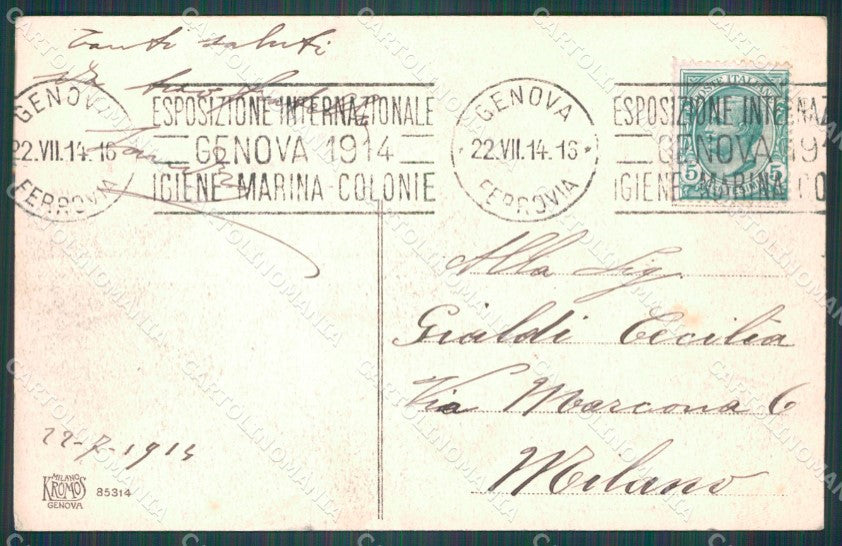 Tanti saluti
GENOVA
22.VII.14.16
FERROVIA
ESPOSIZIONE INTERNAZIONALE
GENOVA 1914
IGIENE-MARINA-COLONIE
GENOVA
22.VII.14.16
FERROVIA
ESPOSIZIONE INTERNAZ
GENOVA 191
IGIENE-MARINA-CO
POSTE ITALIANE
5 5
Alla Sig
Gialdi Cecilia
Via Marcona 6
Milano
22-7-1914
MILANO
KROMOS
GENOVA
85314
CARTOLINOMANIA